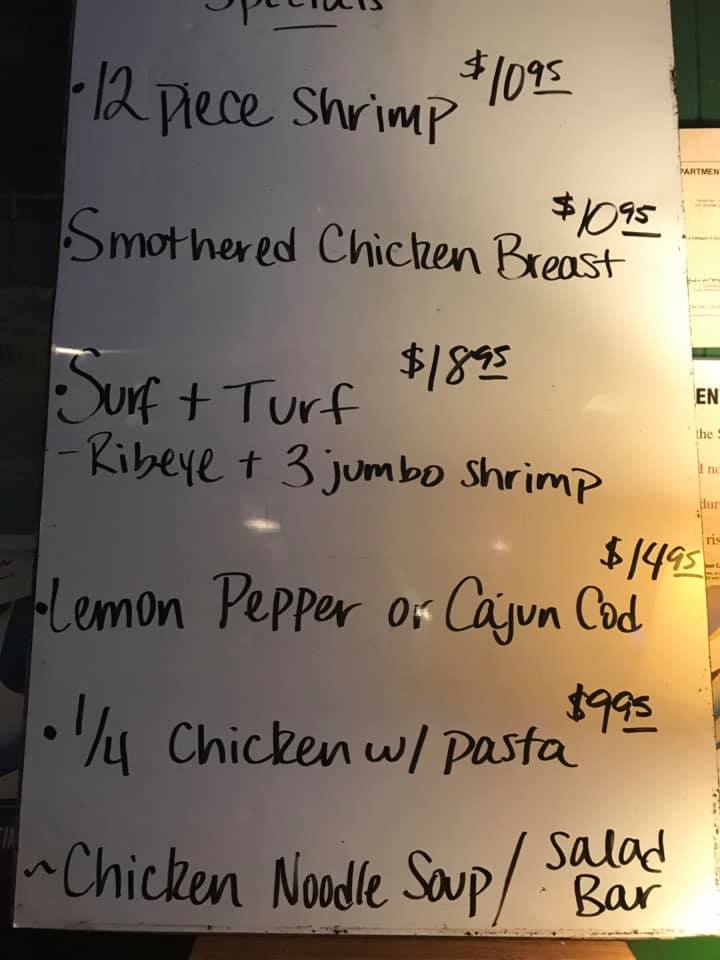 Specials
•12 Piece Shrimp $10.95
•Smothered Chicken Breast $10.95
•Surf + Turf $18.95
- Ribeye + 3 jumbo shrimp
•Lemon Pepper or Cajun Cod $14.95
•1/4 Chicken w/ pasta $9.95
~Chicken Noodle Soup/ Salad Bar
PARTMEN
EN
the